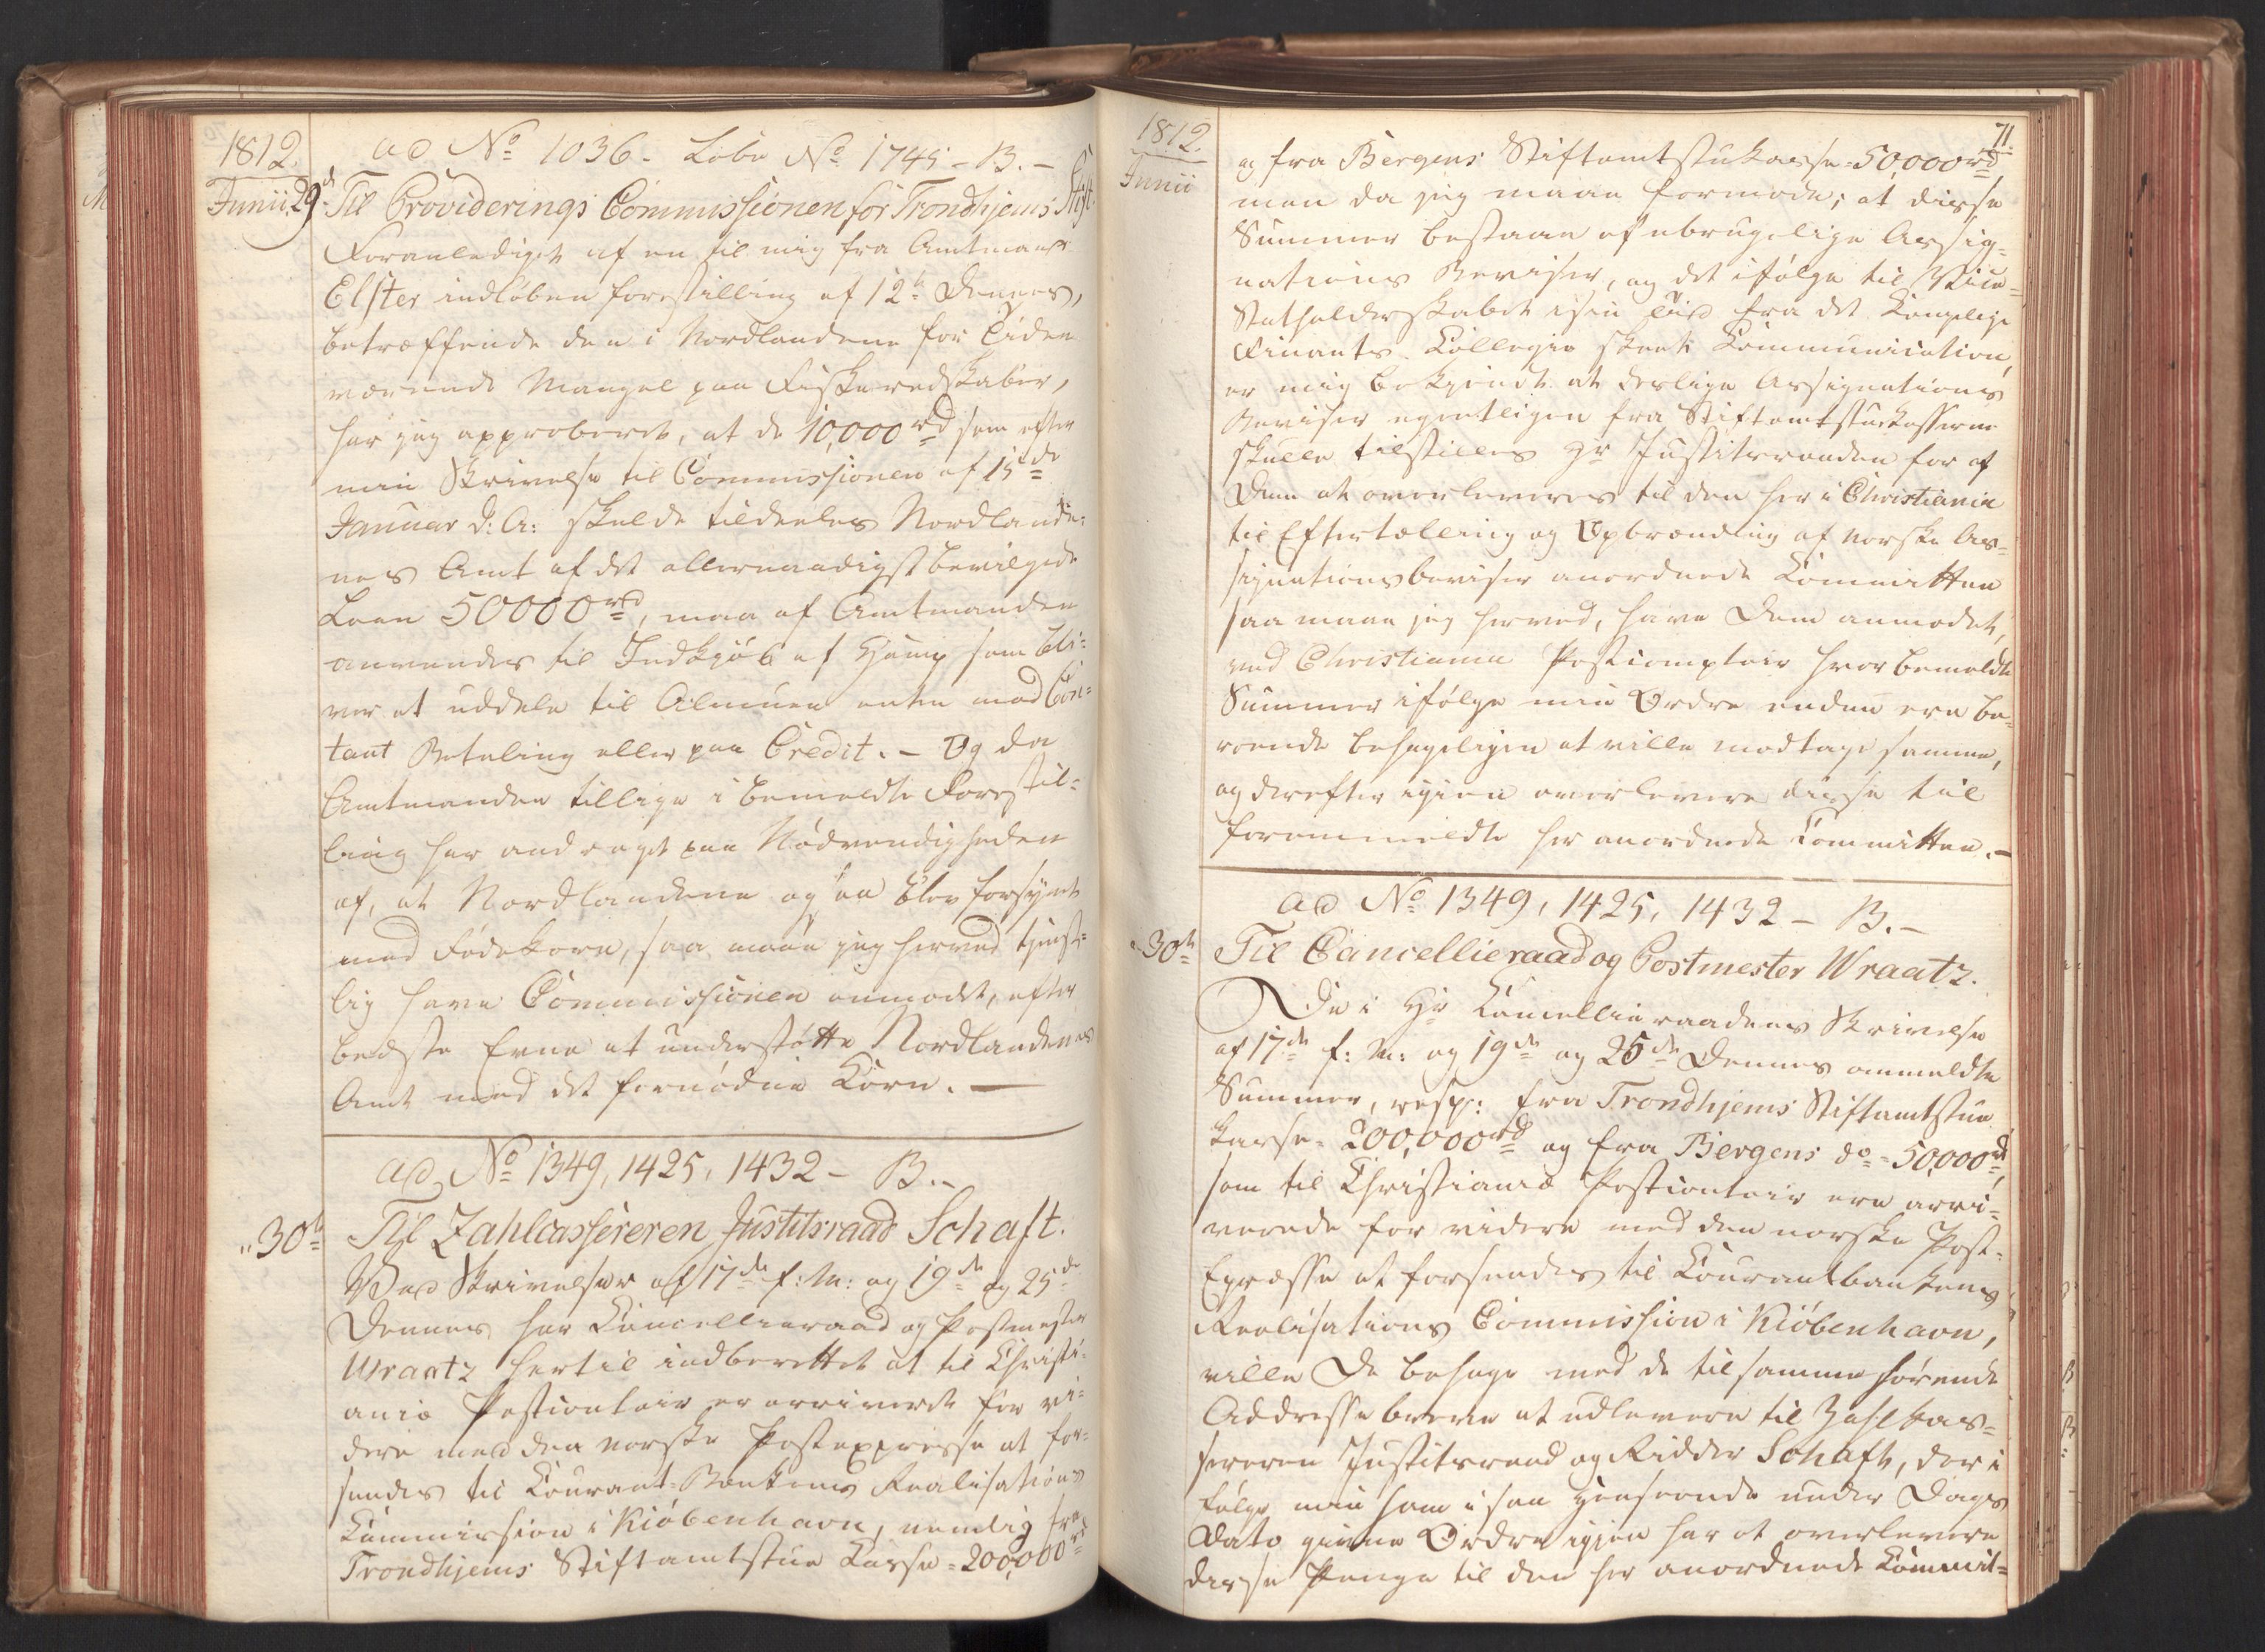 1812.
Junii 29d
ad No 1036 - Löbe No 1745 - B. -
Til Providerings Commissionen for Trondhjems Stift.
Foranlediget af en til mig fra Amtmand
Elster indløben forestilling af 12te Dennes,
betræffende den i Nordlandene for Tiden
værende Mangel paa Fiskeredskaber,
har jeg approberet, at de 10,000 rd som efter
min Skrivelse til Commissionen af 15de
Januar d: A: skulde tildeeles Nordlande-
nes Amt af det allernaadigst bevilgede
Laan 50000 rd, maa af Amtmanden
anvendes til Indkjøb af Hamp som bli-
ver at uddele til Almuen enten mod Con-
tant Betaling eller paa Credit. - Og da
Amtmanden tillige i bemeldte Forestil-
ling har andraget paa Nødvendigheden
af, at Nordlandene og saa blev forsynet
med Fødekorn, saa maae jeg herved tjenst-
lig have Commissionen anmodet, efter
bedste Evne at understøtte Nordlandenes
Amt med det fornødne Korn. -
ad No 1349, 1425, 1432 - B. -
" 30te
Til Zahlcassereren Justitsraad Schaft.
Ved Skrivelser af 17de f: M: og 19de og 25de
Dennes har Cancellieraad og Postmester
Wraatz hertil indberettet at til Christi-
aniæ Postcontoir er arriveret for vi-
dere med den norske Postexpresse at for-
sendes til Courant-Bankens Realisations
Commission i Kiöbenhavn, nemlig fra
Trondhjems Stiftamtstue Kasse = 200,000 rd
71.
1812.
Junii
og fra Bergens Stiftamtstukasse = 50,000 rd
men da jeg maae formode, at disse
Summer bestaae af ubrugelige Assig-
nations Beviser, og det ifølge til Vice-
Statholderskabet i sin Tiid fra det Kongelige
Finants Collegio skeet Communication,
er mig bekjendt at deslige Assignations
Beviser egentligen fra Stiftamtstukasserne
skulle tilstilles Hr Justitsraaden for af
Dem at overleveres til den her i Christiania
til Eftertælling og Opbrænding af norske As-
signationsbeviser anordnede Committee
saa maae jeg herved, have Dem anmodet,
ved Christiania Postcomptoir hvor bemeldte
Summer ifølge min Ordre endnu ere be-
roende behageligen at ville modtage samme,
og derefter igien overlevere disse til
forommeldte her anordnede Committee. -
ad No 1349, 1425, 1432 - B. -
" 30te
Til Cancellieraad og Postmester Wraatz.
De i Hr Cancellieraadens Skrivelse
af 17de f: M: og 19de og 25de Dennes anmeldte
Summer, resp: fra Trondhjems Stiftamtstue
Kasse = 200,000 rd og fra Bergens do = 50,000 rd,
som til Christianiæ Postcontoir ere arri-
verede for videre med den norske Post-
Expresse at forsendes til Courantbankens
Realisations Commission i Kiöbenhavn,
ville De behage med de til samme hørende
Addressebreve at udlevere til Zahlkas-
sereren Justitsraad og Ridder Schaft, der i
følge min ham i saa Henseende under Dags
Dato givne Ordre igjen har at overlevere
disse Penge til den her anordnede Commit-